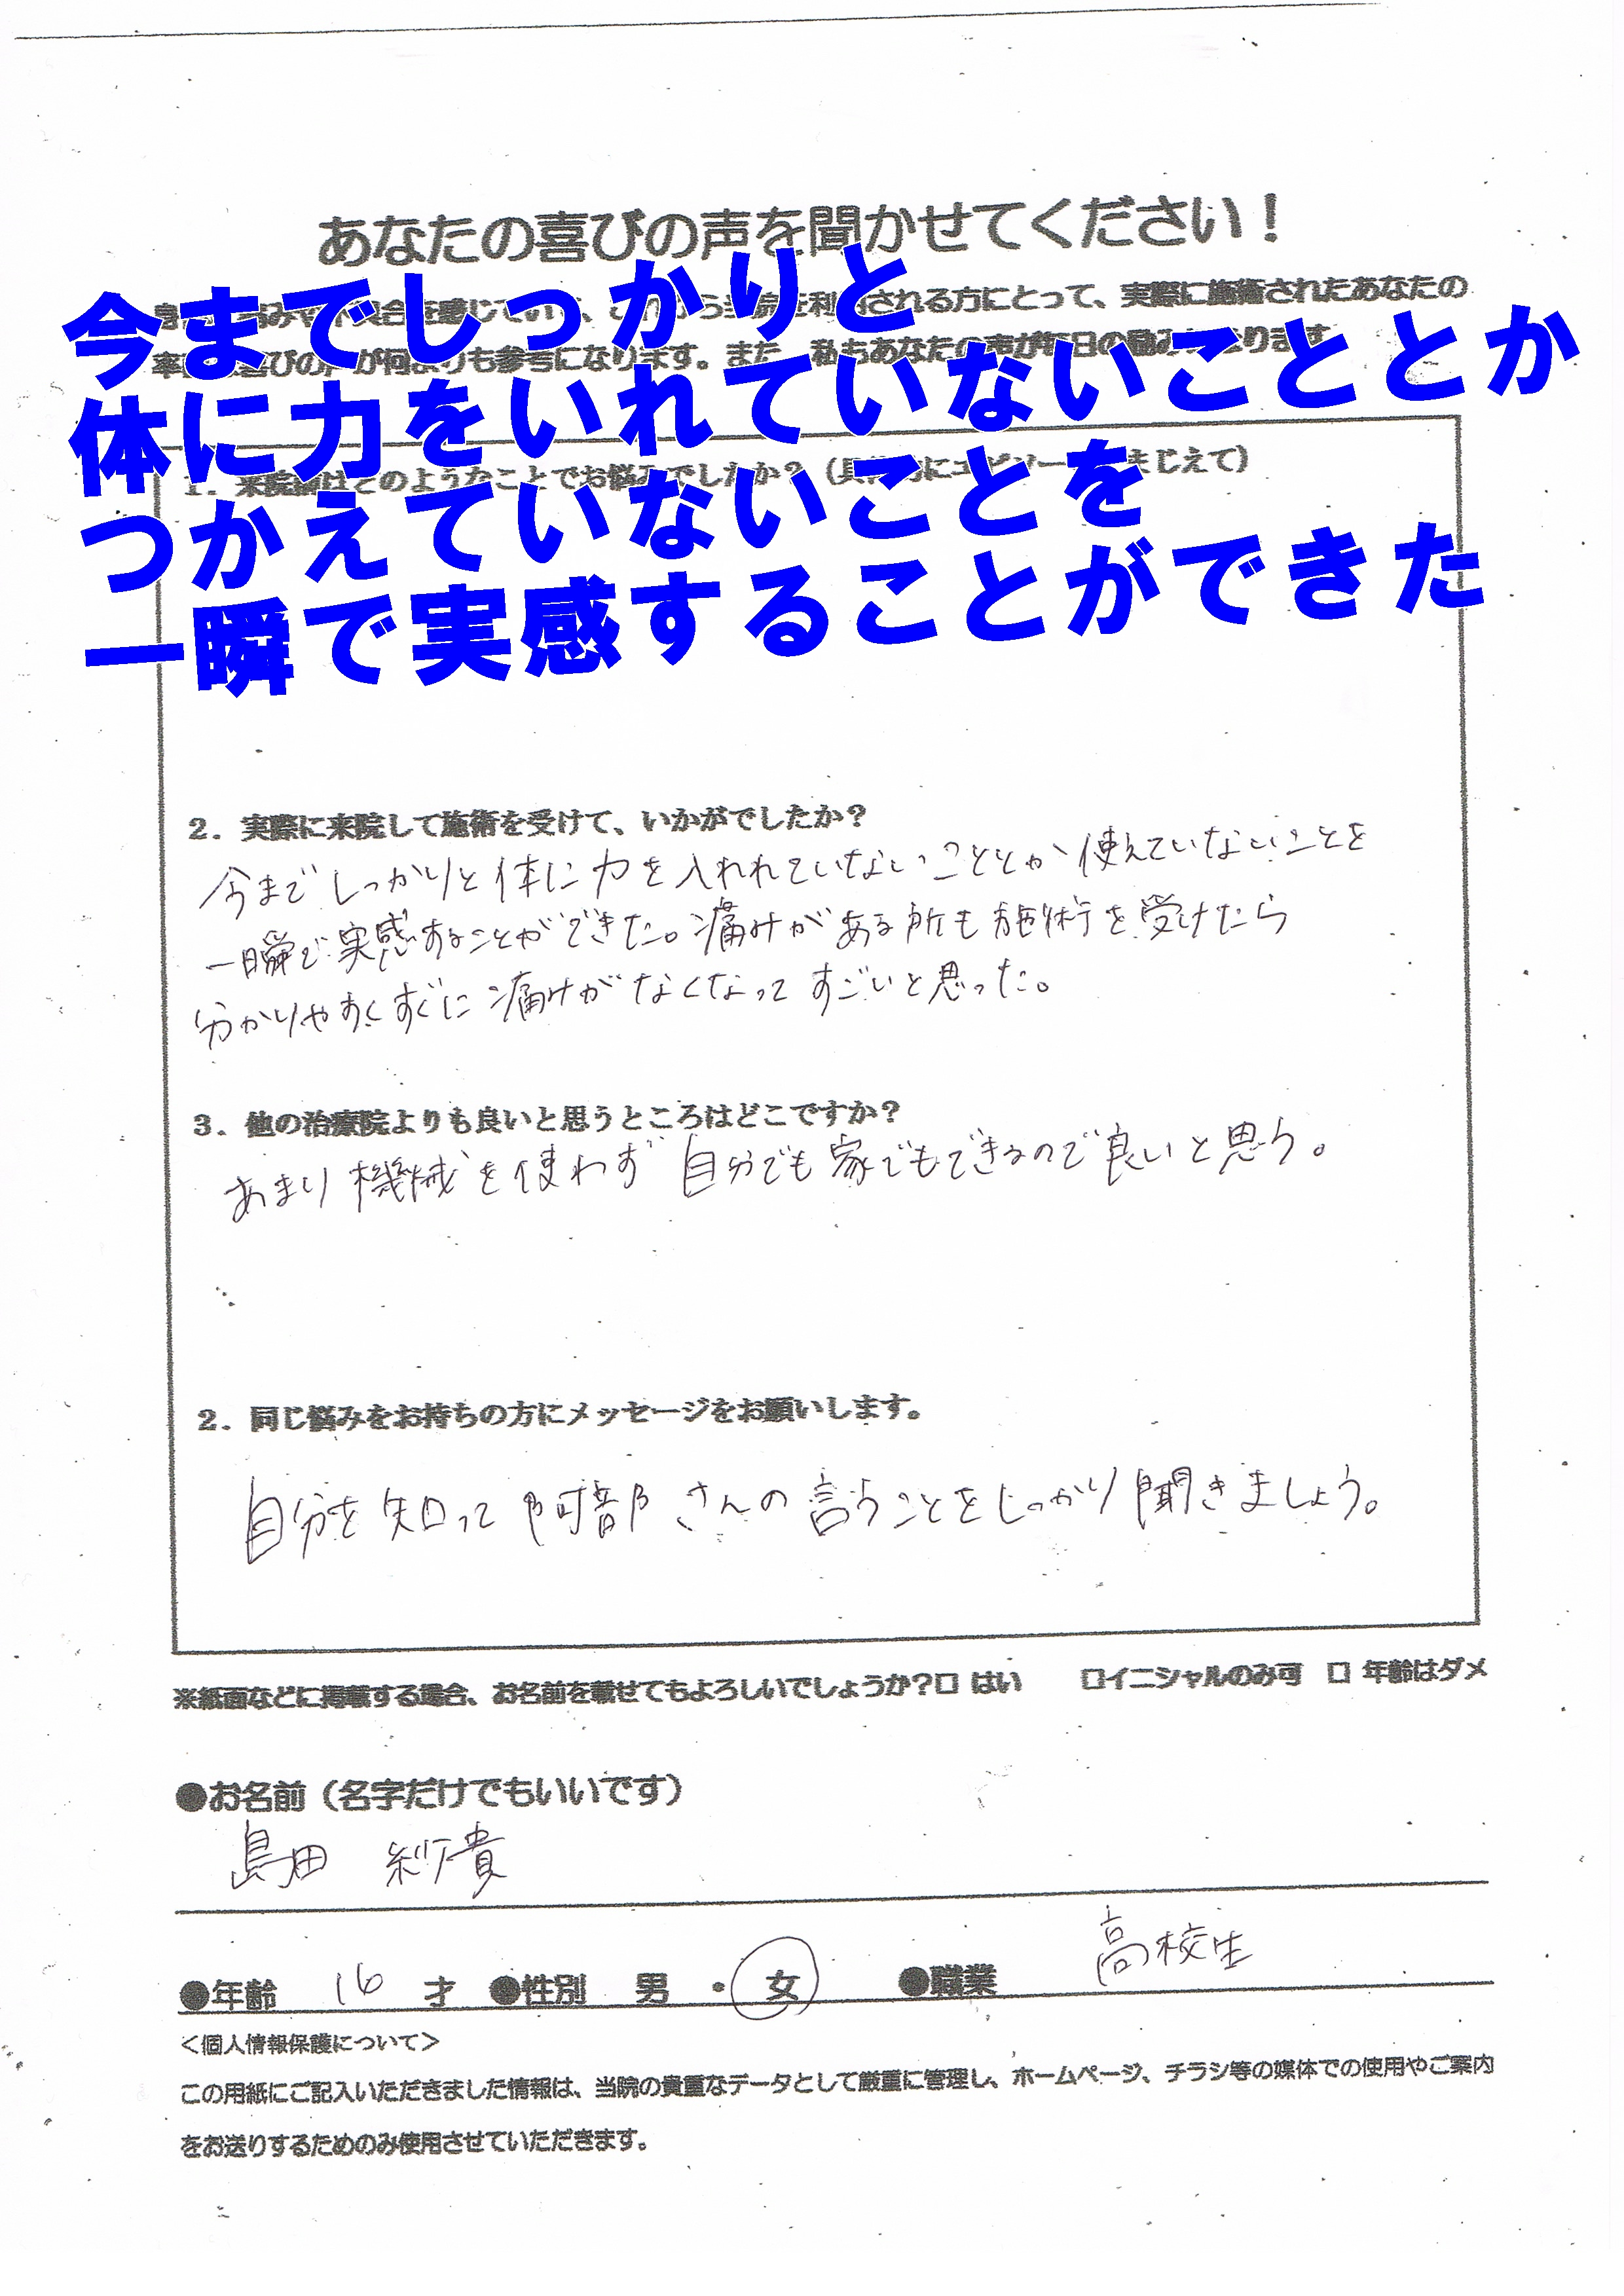 あなたの喜びの声を聞かせてください！
今までしっかりと
体に力をいれていないこととか
つかえていないことを
一瞬で実感することができた
2．実際に来院して施術を受けて、いかがでしたか？
今までしっかりと体に力を入れれていないこととか使えていないことを
一瞬で実感することができた。痛みがある所も施術を受けたら
分かりやすくすぐに痛みがなくなってすごいと思った。
3．他の治療院よりも良いと思うところはどこですか？
あまり機械を使わず自分でも家でもできるので良いと思う。
2．同じ悩みをお持ちの方にメッセージをお願いします。
自分を知って阿部さんの言うことをしっかり聞きましょう。
※紙面などに掲載する場合、お名前を載せてもよろしいでしょうか？□ はい □イニシャルのみ可 □ 年齢はダメ
●お名前（名字だけでもいいです）
島田 紗貴
●年齢 16 才 ●性別 男 ・ 女 ●職業 高校生
＜個人情報保護について＞
この用紙にご記入いただきました情報は、当院の貴重なデータとして厳重に管理し、ホームページ、チラシ等の媒体での使用やご案内
をお送りするためのみ使用させていただきます。